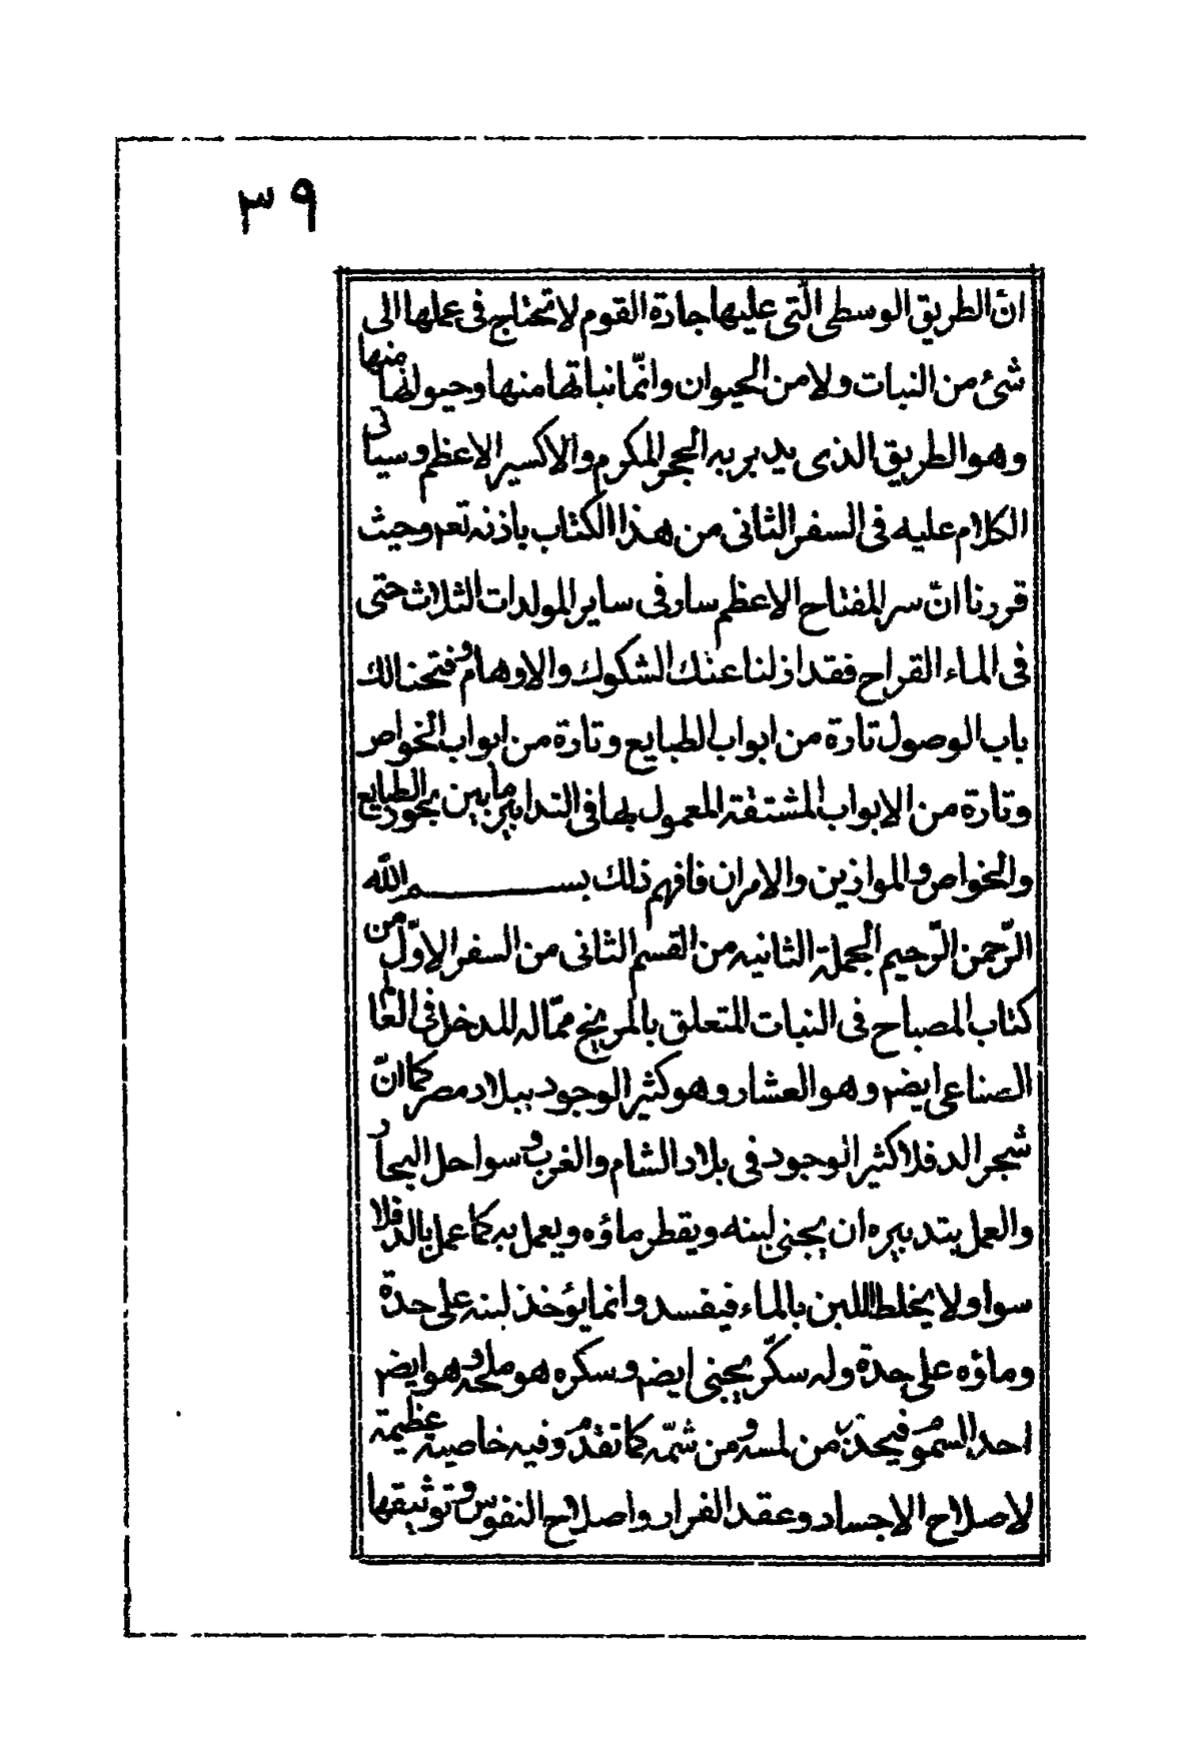 ٣٩
انّ الطريق الوسطى الّتى عليها جادة القوم لا تحتاج فى عملها الى
شئ من النبات ولا من الحيوان وانّما نباتها منها وحيولها منها
وهو الطريق الذى يدبر به الحجر المكرم والاكسير الاعظم وسياتى
الكلام عليه فى السفر الثانى من هذا الكتاب باذنه تعم وحيث
قررنا انّ سر المفتاح الاعظم سار فى ساير المولدات الثلاث حتى
فى الماء القراح فقد ازلنا عنك الشكوك والاوهام وفتحنا لك
باب الوصول تارة من ابواب الطبايع وتارة من ابواب الخواص
وتارة من الابواب المشتقة المعمول بها فى التدابير ما بين بحود الطبايع
والخواص والموازين والامزان فافهم ذلك بسم الله
الرّحمن الرّحيم الجملة الثانيه من القسم الثانى من السفر الاوّل من
كتاب المصباح فى النبات المتعلق بالمريخ ممّا له المدخل فى العالم
الصناعى ايضم وهو العشار وهو كثير الوجود ببلاد مصر كما انّ
شجر الدفلا كثير الوجود فى بلاد الشام والغرب وسواحل البحار
والعمل بتدبيره ان يجنى لبنه ويقطر ماؤه ويعمل به كما عمل بالدفلا
سوا ولا يخلط اللبن بالماء فيفسد وانما يؤخذ لبنه على حدة
وماؤه على حدة وله سكّر يجنى ايضم وسكره هو ملحه وهو ايضم
احد السموم فيحذر من لمسه ومن شمّه كما تقدم وفيه خاصية عظيمة
لاصلاح الاجساد وعقد الفرار واصلاح النفوس وتوثيقها